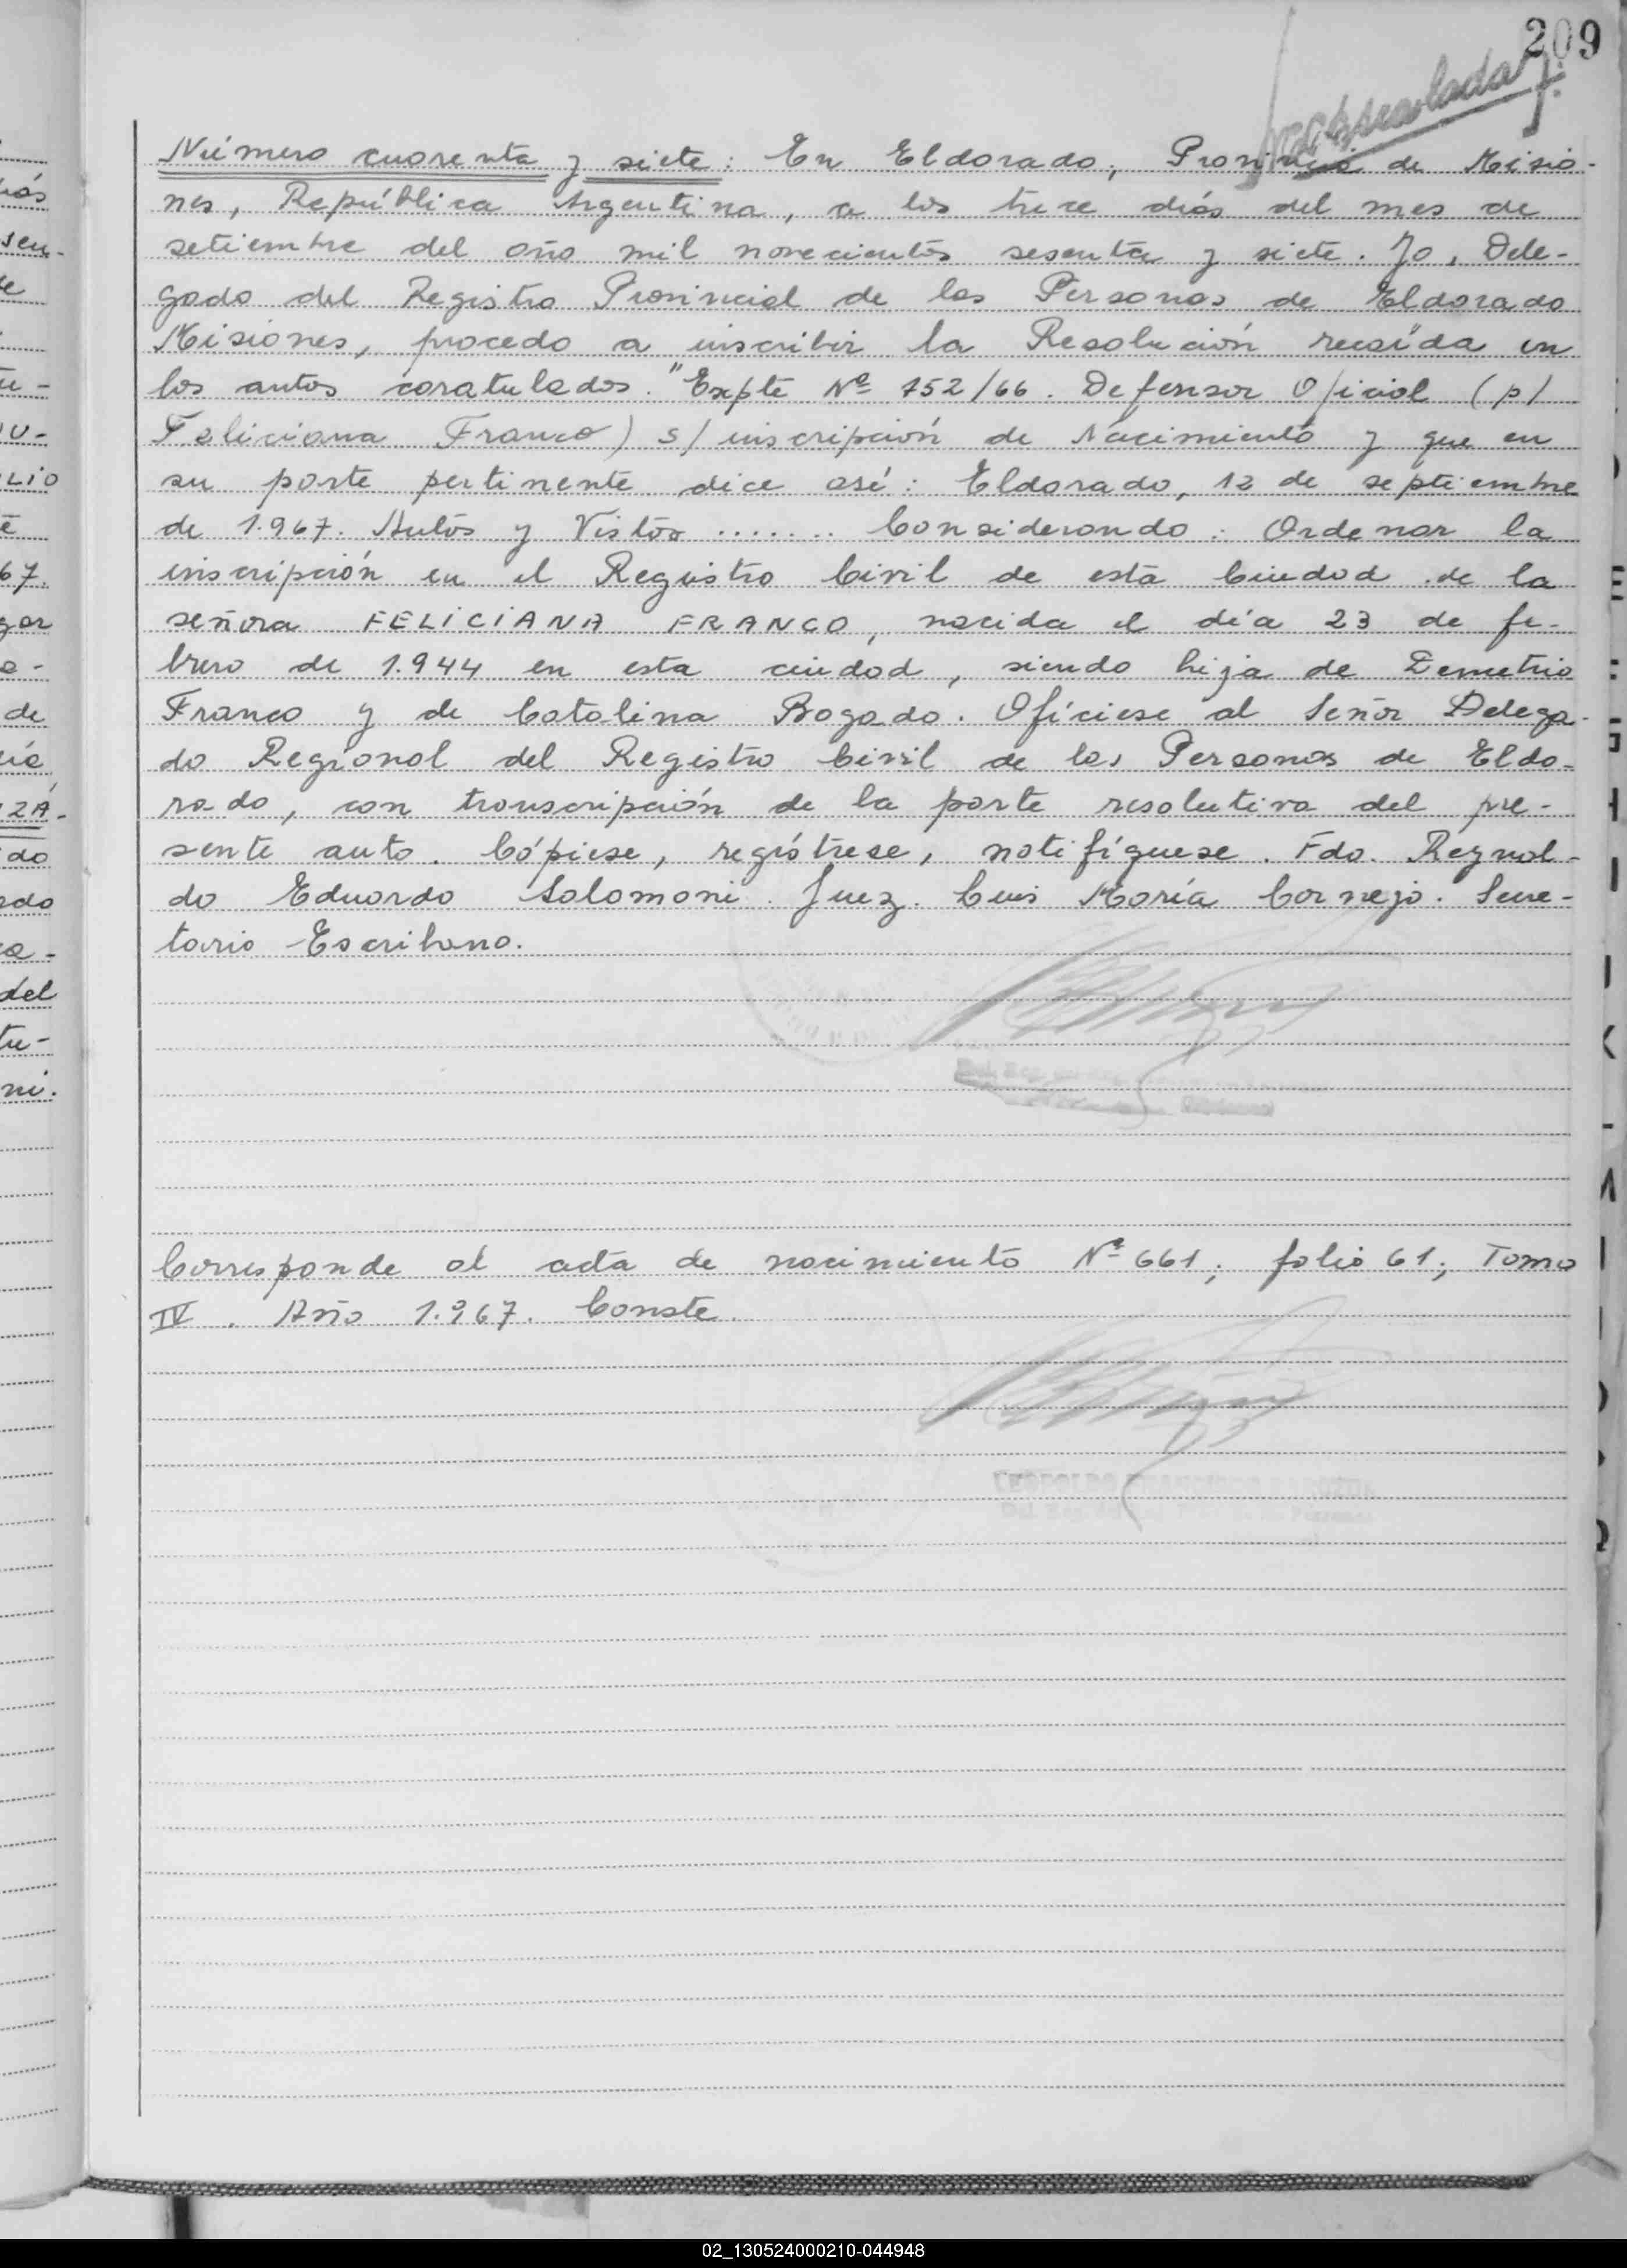 209
Número cuarenta y siete: En Eldorado, Provincia de Misio-
nes, República Argentina, a los trece días del mes de
setiembre del año mil novecientos sesenta y siete. Yo, Dele-
gado del Registro Provincial de las Personas de Eldorado
Misiones, procedo a inscribir la Resolución recaída en
los autos caratulados. "Expte Nº 752/66. Defensor Oficial (p/
Feliciana Franco) s/ inscripción de Nacimiento y que en
su parte pertinente dice así: Eldorado, 12 de septiembre
de 1.967. Autos y Vistos ....... Considerando: Ordenar la
inscripción en el Registro Civil de esta Ciudad de la
señora FELICIANA FRANCO, nacida el día 23 de fe-
brero de 1.944 en esta ciudad, siendo hija de Demetrio
Franco y de Catalina Bogado. Ofíciese al Señor Delega-
do Regional del Registro Civil de las Personas de Eldo-
rado, con transcripción de la parte resolutiva del pre-
sente auto. Cópiese, regístrese, notifíquese. Fdo. Reynal-
do Eduardo Salomoni. Juez. Luis María Cornejo. Secre-
tario Escribano.
Corresponde al acta de nacimiento Nº 661; folio 61; Tomo
IV. Año 1.967. Conste.
LEOPOLDO
02_130524000210-044948